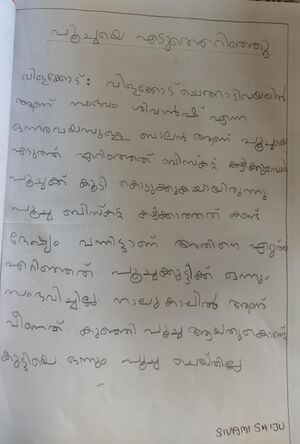 പൂച്ചയെ എടുത്തെറിഞ്ഞു
വിളക്കോട്: വിളക്കോട് ചെങ്ങാടിവയലിൽ
ആണ് സംഭവം ശിവാൻഷ് എന്ന
ഒന്നരവയസുള്ള ബാലൻ ആണ് പൂച്ചയെ
എടുത്ത് എറിഞ്ഞത്. ബിസ്കറ്റ് കഴിക്കുമ്പോൾ
പൂച്ചക്ക് കൂടി കൊടുക്കുകയായിരുന്നു
പൂച്ച ബിസ്കറ്റ് കഴിക്കാത്തത് കണ്ട്
ദേഷ്യം വന്നിട്ടാണ് അതിനെ എടുത്ത്
എറിഞ്ഞത് പൂച്ചക്കുട്ടിക്ക് ഒന്നും
സംഭവിച്ചില്ല നാലുകാലിൽ ആണ്
വീണത്. കുഞ്ഞി പൂച്ച ആയതുകൊണ്ട്
കുട്ടിയെ ഒന്നും പൂച്ച ചെയ്തില്ല
SIVAMI SHIJU